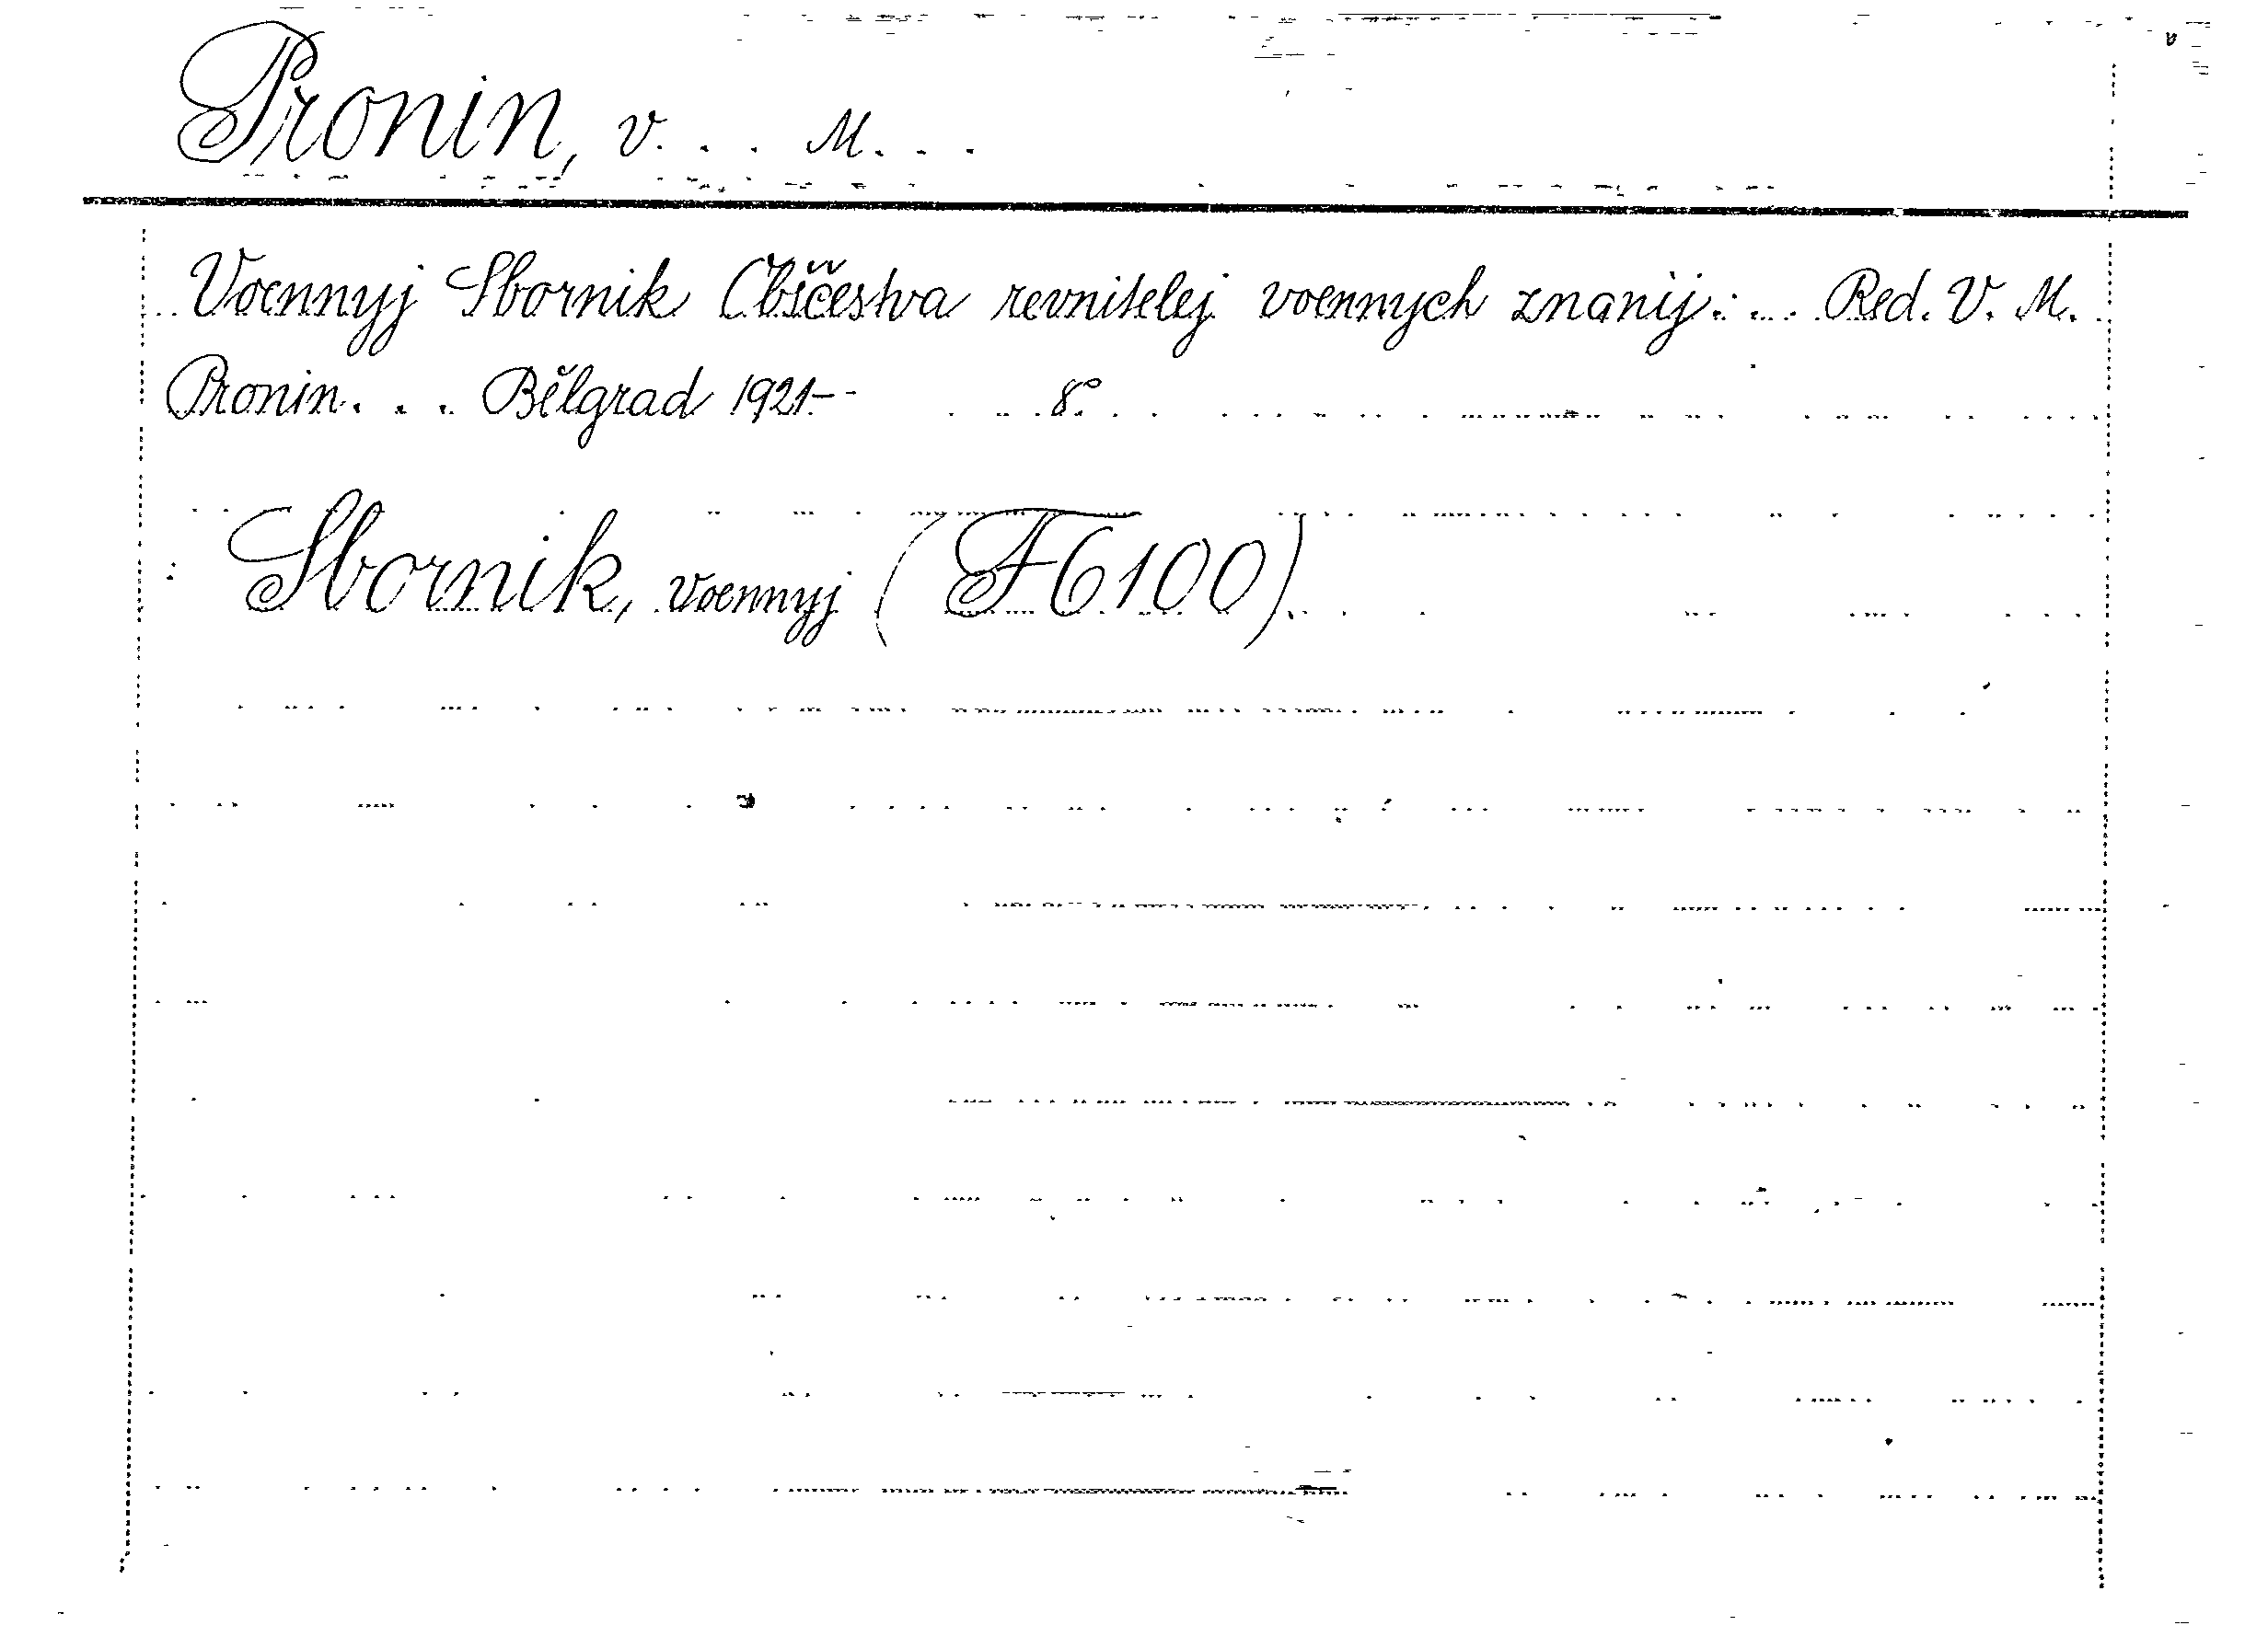 Pronin, V. . . M. . .
Voennyj Sbornik Obščestva revnitelej voennych znanij. ... Red. V. M.
Pronin. . . Bělgrad 1921.- 8°.
Sbornik, voennyj (F6100).